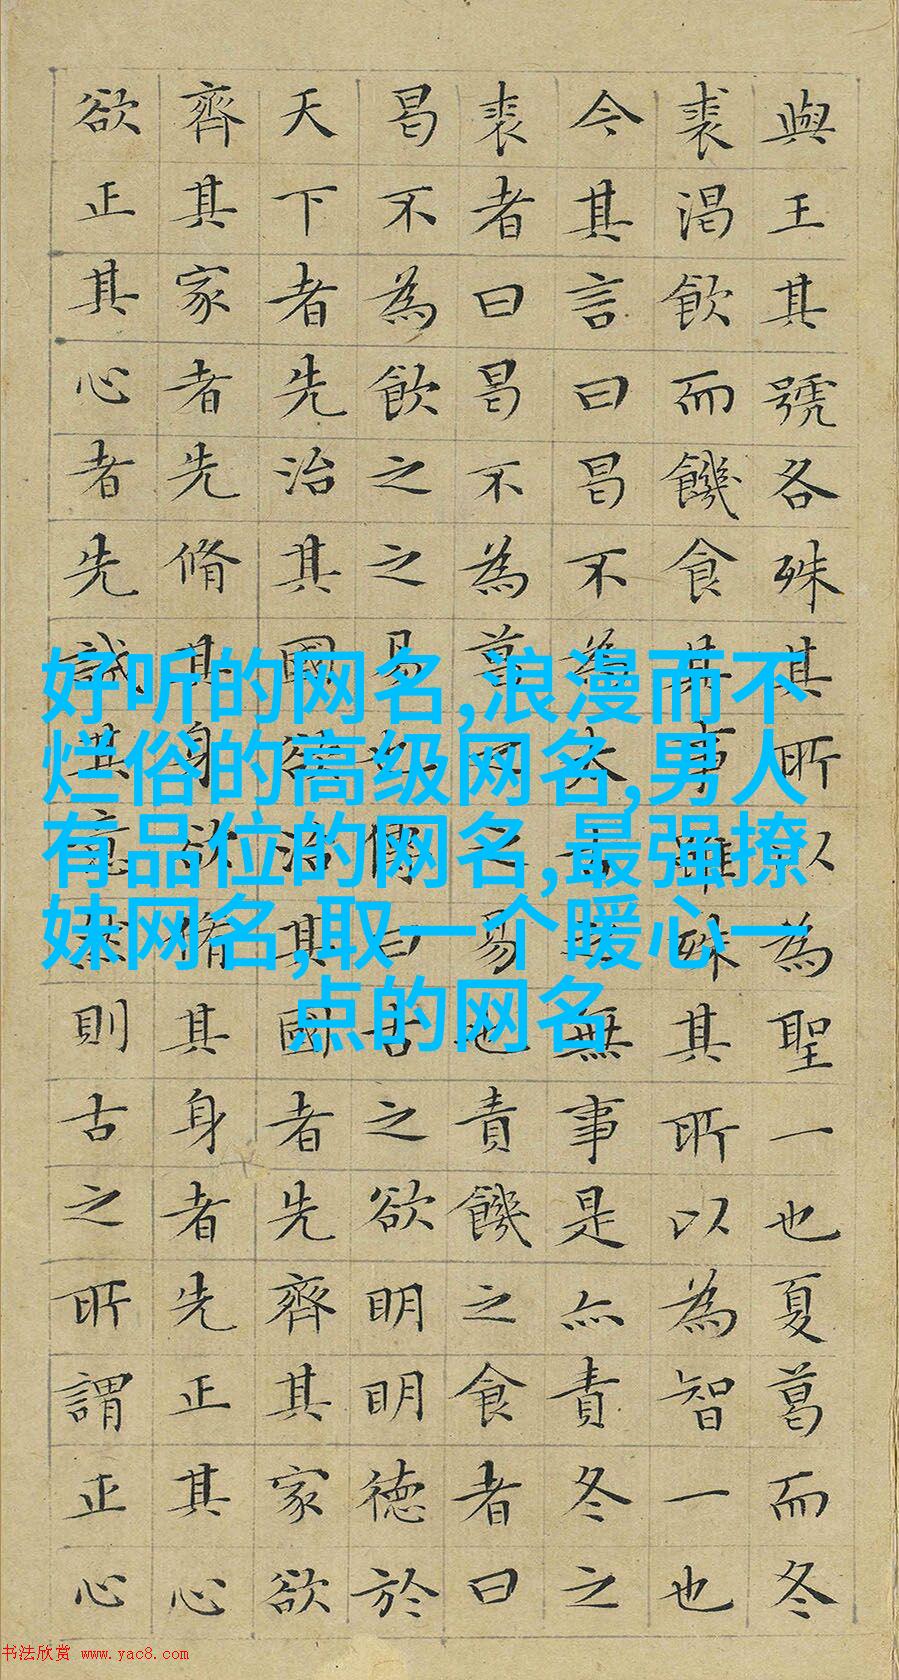 與王其號各殊其所以為聖一也夏葛而冬
裘渴飲而饑食其事雖殊其所以為智一也
今其言曰曷不為太古之無事是亦責冬之
裘者曰曷不為葛之之易也責饑之食者曰
曷不為飲之之易也傳曰古之欲明明德於
天下者先治其國欲治其國者先齊其家欲
齊其家者先脩其身欲脩其身者先正其心
欲正其心者先誠其意然則古之所謂正心
好听的网名,浪漫而不
烂俗的高级网名,男人
有品位的网名,最强撩
妹网名,取一个暖心一
点的网名
书法欣赏 www.yac8.com